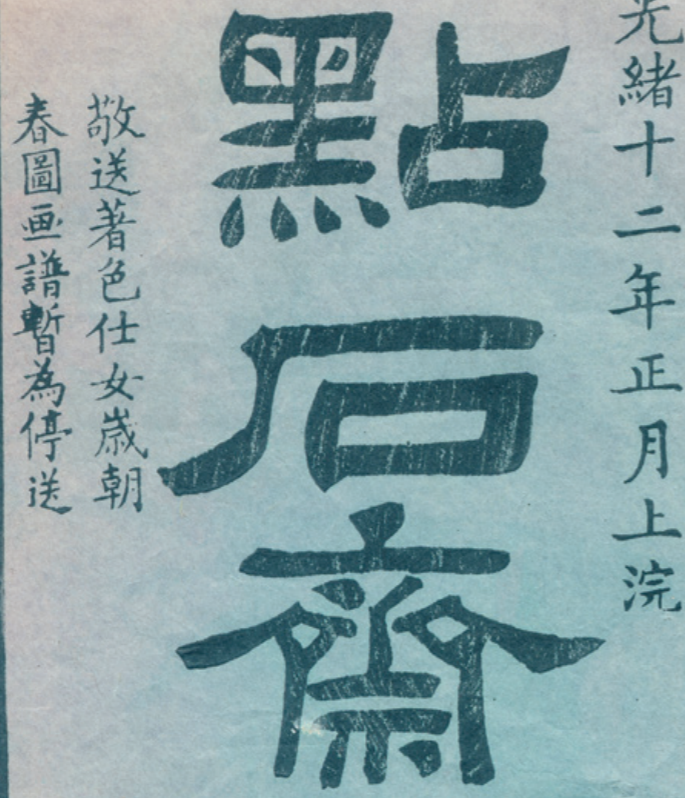 光緒十二年正月上浣
點石齋
敬送著色仕女歲朝
春圖画譜暫為停送